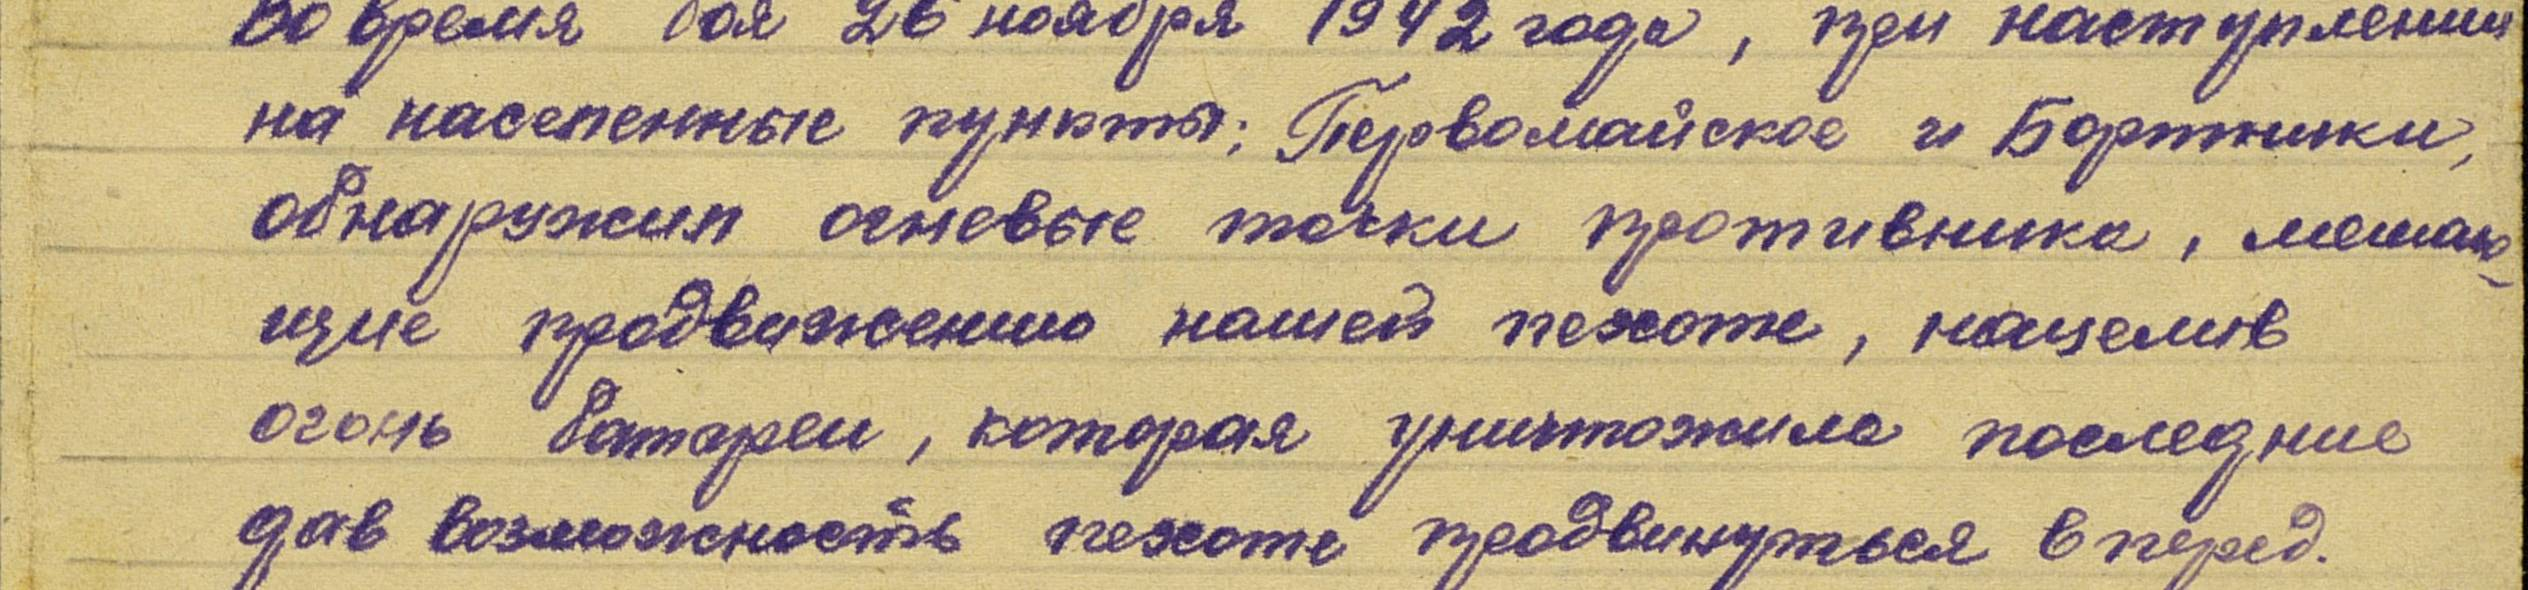 Во время боя 26 ноября 1942 года, при наступлении
на населенные пункты: Первомайское и Бортники,
обнаружил огневые точки противника, мешаю-
щие продвижению нашей пехоте, нацелив
огонь батареи, которая уничтожила последние
дав возможность пехоте продвинуться вперед.